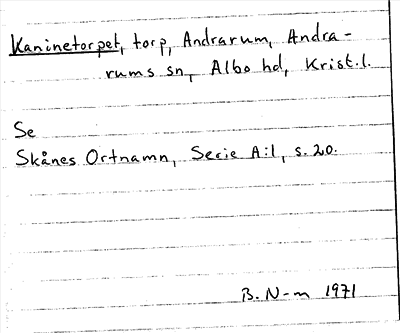 Kaninetorpet, torp, Andrarum, Andra-
rums sn, Albo hd, Krist.l.
Se
Skånes Ortnamn, Serie A:1, s. 20.
B. N-m 1971